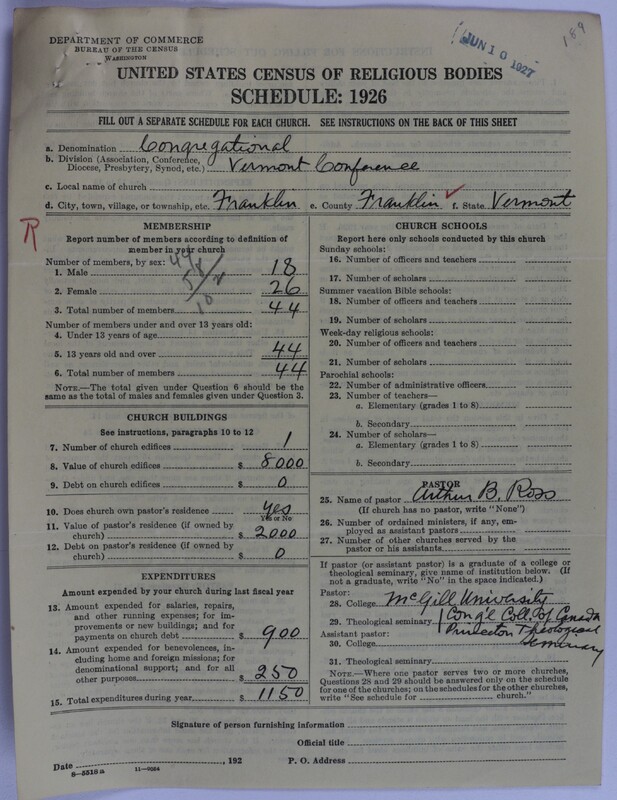 DEPARTMENT OF COMMERCE
BUREAU OF THE CENSUS
WASHINGTON
JUN 10 1927
189
UNITED STATES CENSUS OF RELIGIOUS BODIES
SCHEDULE: 1926
FILL OUT A SEPARATE SCHEDULE FOR EACH CHURCH. SEE INSTRUCTIONS ON THE BACK OF THIS SHEET
a. Denomination Congregational
b. Division (Association, Conference, Diocese, Presbytery, Synod, etc.) Vermont Conference
c. Local name of church
d. City, town, village, or township, etc. Franklin e. County Franklin f. State Vermont
R
MEMBERSHIP
Report number of members according to definition of
member in your church
Number of members, by sex:
1. Male 18
2. Female 26
3. Total number of members 44
Number of members under and over 13 years old:
4. Under 13 years of age
5. 13 years old and over 44
6. Total number of members 44
NOTE.—The total given under Question 6 should be
same as the total of males and females given under Question 3.
CHURCH BUILDINGS
See instructions, paragraphs 10 to 12
7. Number of church edifices 1
8. Value of church edifices $ 8000
9. Debt on church edifices $ 0
10. Does church own pastor's residence? Yes
Yes or No
11. Value of pastor's residence (if owned by
church) $ 2000
12. Debt on pastor's residence (if owned by
church) $ 0
EXPENDITURES
Amount expended by your church during last fiscal year
13. Amount expended for salaries, repairs,
and other running expenses; for im-
provements or new buildings; and for
payments on church debt $ 900
14. Amount expended for benevolences, in-
cluding home and foreign missions; for
denominational support; and for all
other purposes $ 250
15. Total expenditures during year $ 1150
CHURCH SCHOOLS
Report here only schools conducted by this church
Sunday schools:
16. Number of officers and teachers
17. Number of scholars
Summer vacation Bible schools:
18. Number of officers and teachers
19. Number of scholars
Week-day religious schools:
20. Number of officers and teachers
21. Number of scholars
Parochial schools:
22. Number of administrative officers
23. Number of teachers—
a. Elementary (grades 1 to 8)
b. Secondary
24. Number of scholars—
a. Elementary (grades 1 to 8)
b. Secondary
PASTOR
25. Name of pastor Arthur B. Ross
(If church has no pastor, write "None")
26. Number of ordained ministers, if any, em-
ployed as assistant pastors
27. Number of other churches served by the
pastor or his assistants
If pastor (or assistant pastor) is a graduate of a college or
theological seminary, give name of institution below. (If
not a graduate, write "No" in the space indicated.)
Pastor:
28. College McGill University
29. Theological seminary Cong'l Coll. of Canada
Princeton Theological
Seminary
Assistant pastor:
30. College
31. Theological seminary
NOTE.—Where one pastor serves two or more churches,
Questions 28 and 29 should be answered only on the schedule
for one of the churches; on the schedules for the other churches,
write "See schedule for church."
Signature of person furnishing information
Official title
Date , 192 P. O. Address
8-5518a 11-9054